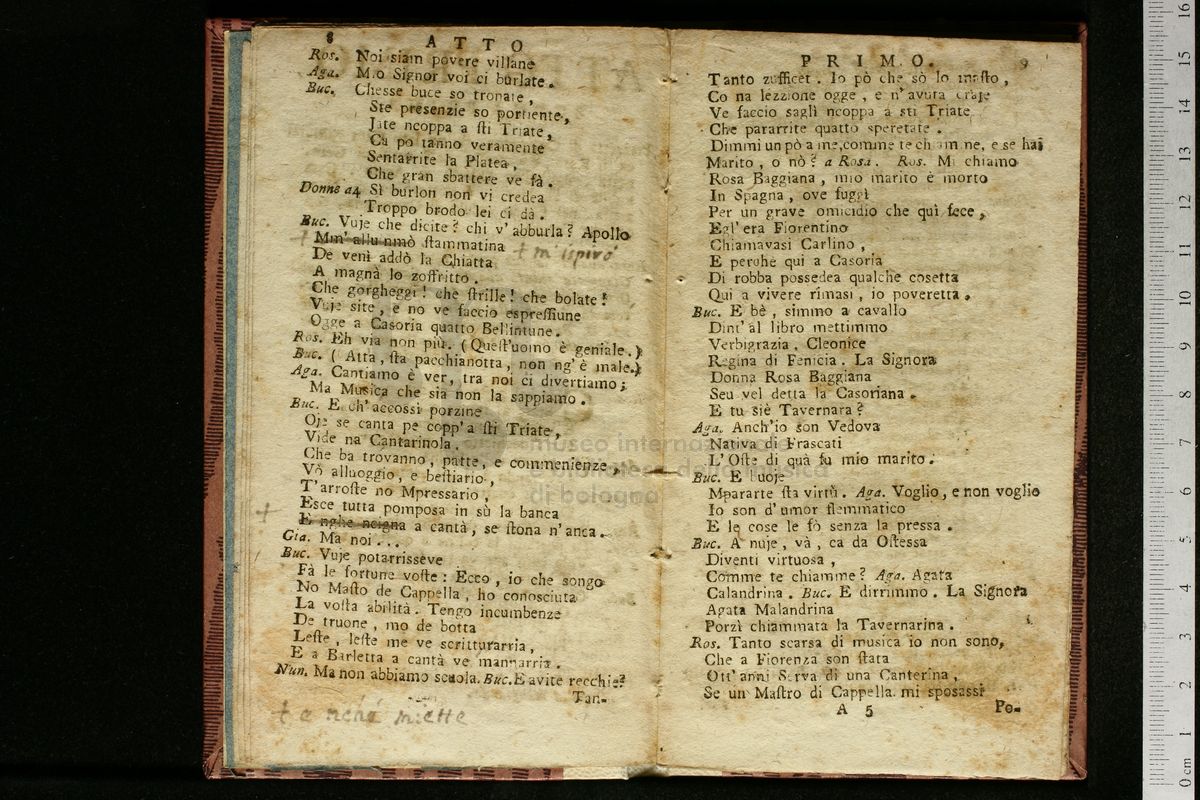 8
ATTO
Ros. Noi siam povere villane
Aga. Mio Signor voi ci burlate.
Buc. Chesse buce so tronate,
Ste presenzie so portiente,
Jate ncoppa a sti Triate,
Ca po tanno veramente
Sentarrite la Platea,
Che gran sbattere ve fà.
Donne a4 Sì burlon non vi credea
Troppo brodo lei ci dà.
Buc. Vuje che dicite? chi v'abburla? Apollo
Mm' allummò stammatina
† m'ispirò
De venì addò la Chiatta
A magnà lo zoffritto.
Che gorgheggi! che strille! che bolate!
Vuje site, e no ve faccio espressiune
Ogge a Casoria quatto Bellintune.
Ros. Eh via non più. (Quest'uomo è geniale.)
Buc. (Atta, sta pacchianotta, non ng'è male.)
Aga. Cantiamo è ver, tra noi ci divertiamo;
Ma Musica che sia non la sappiamo.
Buc. E ch'accossì porzine
Oje se canta pe copp'a sti Triate,
Vide na Cantarinola,
Che ba trovanno, patte, e commenienze,
Vò alluoggio, e bestiario,
T'arroste no Mpressario,
Esce tutta pomposa in sù la banca
† E nghe ncigna a cantà, se stona n'anca.
Gia. Ma noi...
Buc. Vuje potarrisseve
Fà le fortune voste: Ecco, io che songo
No Masto de Cappella, ho conosciuta
La vosta abilità. Tengo incumbenze
De truone, mo de botta
Leste, leste me ve scritturarria,
E a Barletta a cantà ve mannarria.
Nun. Ma non abbiamo scuola. Buc. E avite recchie?
Tan-
PRIMO.
9
Tanto zufficet. Io pò che sò lo masto,
Co na lezzione ogge, e n'avuta craje
Ve faccio saglì ncoppa a sti Triate
Che pararrite quatto speretate.
Dimmi un pò a me, comme te chiammine, e se hai
Marito, o nò? a Rosa. Ros. Mi chiamo
Rosa Baggiana, mio marito è morto
In Spagna, ove fuggì
Per un grave omicidio che quì fece,
Egl'era Fiorentino
Chiamavasi Carlino,
E perche qui a Casoria
Di robba possedea qualche cosetta
Qui a vivere rimasi, io poveretta.
Buc. E bè, simmo a cavallo
Dint'al libro mettimmo
Verbigrazia, Cleonice
Regina di Fenicia. La Signora
Donna Rosa Baggiana
Seu vel detta la Casoriana.
E tu siè Tavernara?
Aga. Anch'io son Vedova
Nativa di Frascati
L'Oste di quà fu mio marito.
Buc. E buoje
Mpararte sta virtù. Aga. Voglio, e non voglio
Io son d'umor flemmatico
E le cose le fò senza la pressa.
Buc. A nuje, và, ca da Ostessa
Diventi virtuosa,
Comme te chiamme? Aga. Agata
Calandrina. Buc. E dirrimmo. La Signora
Agata Malandrina
Porzì chiammata la Tavernarina.
Ros. Tanto scarsa di musica io non sono,
Che a Fiorenza son stata
Ott'anni Serva di una Canterina,
Se un Mastro di Cappella mi sposassi
A 5
Po-
museo internazionale
e biblioteca della musica
di bologna